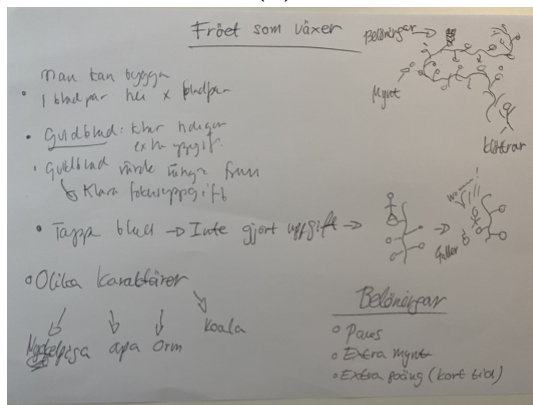 Fröet som växer
Belöningar
Mynt
Klättrar
Man kan bygga
1 bladpar hel x bladpar
Guldblad: Klar
extra uppgift.
Guldblad
Klara fokusuppgift
Tappa blad → Inte gjort uppgift →
Faller
Olika Karaktärer
Nyckelpiga apa Orm Koala
Belöningar
Paus
Extra mynt
Extra poäng (kort tid)